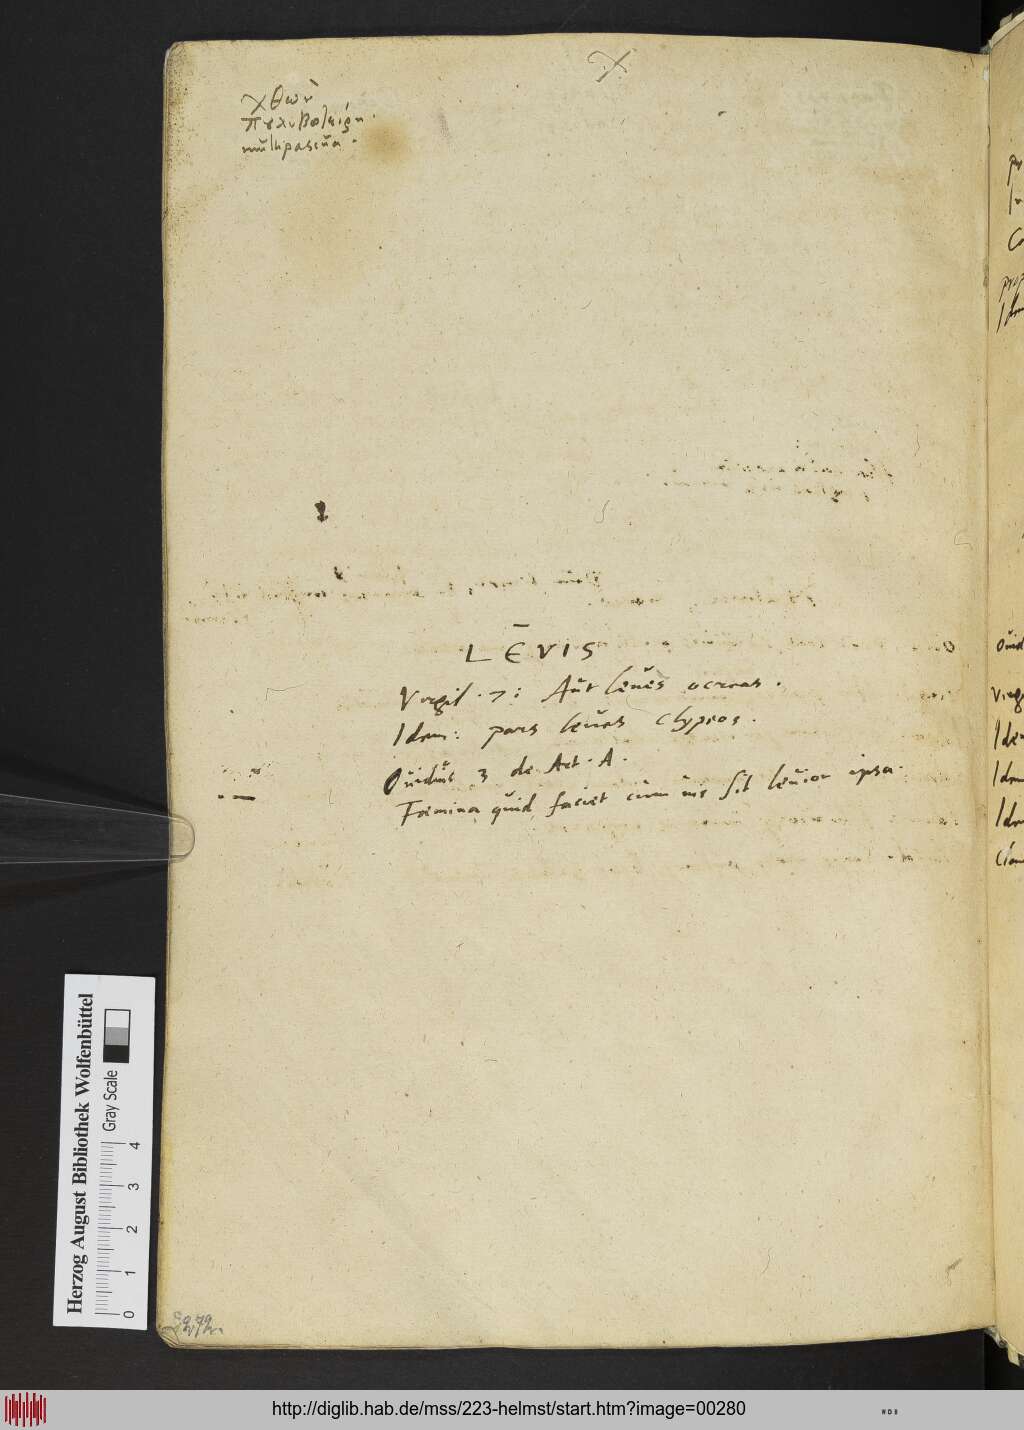 χθὼν
πουλυβοτείρη.
multipascua.
LĒVIS
Virgil. 7: Aut leues ocreas.
Idem: pars leues clypeos.
Ouidius 3 de Art. A.
Fœmina quid faciet cum uir sit leuior ipsa.
Ouid
Virg
Idem
Idem
Idem
Herzog August Bibliothek Wolfenbüttel
Gray Scale
0 1 2 3 4
http://diglib.hab.de/mss/223-helmst/start.htm?image=00280